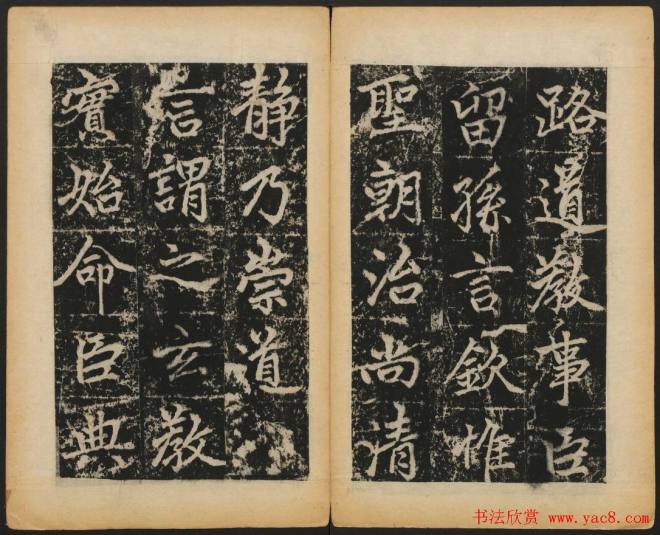 路道教事臣
留孫言欽惟
聖朝治尚清
静乃崇道
言謂之玄教
實始命臣典
书法欣赏 www.yac8.com